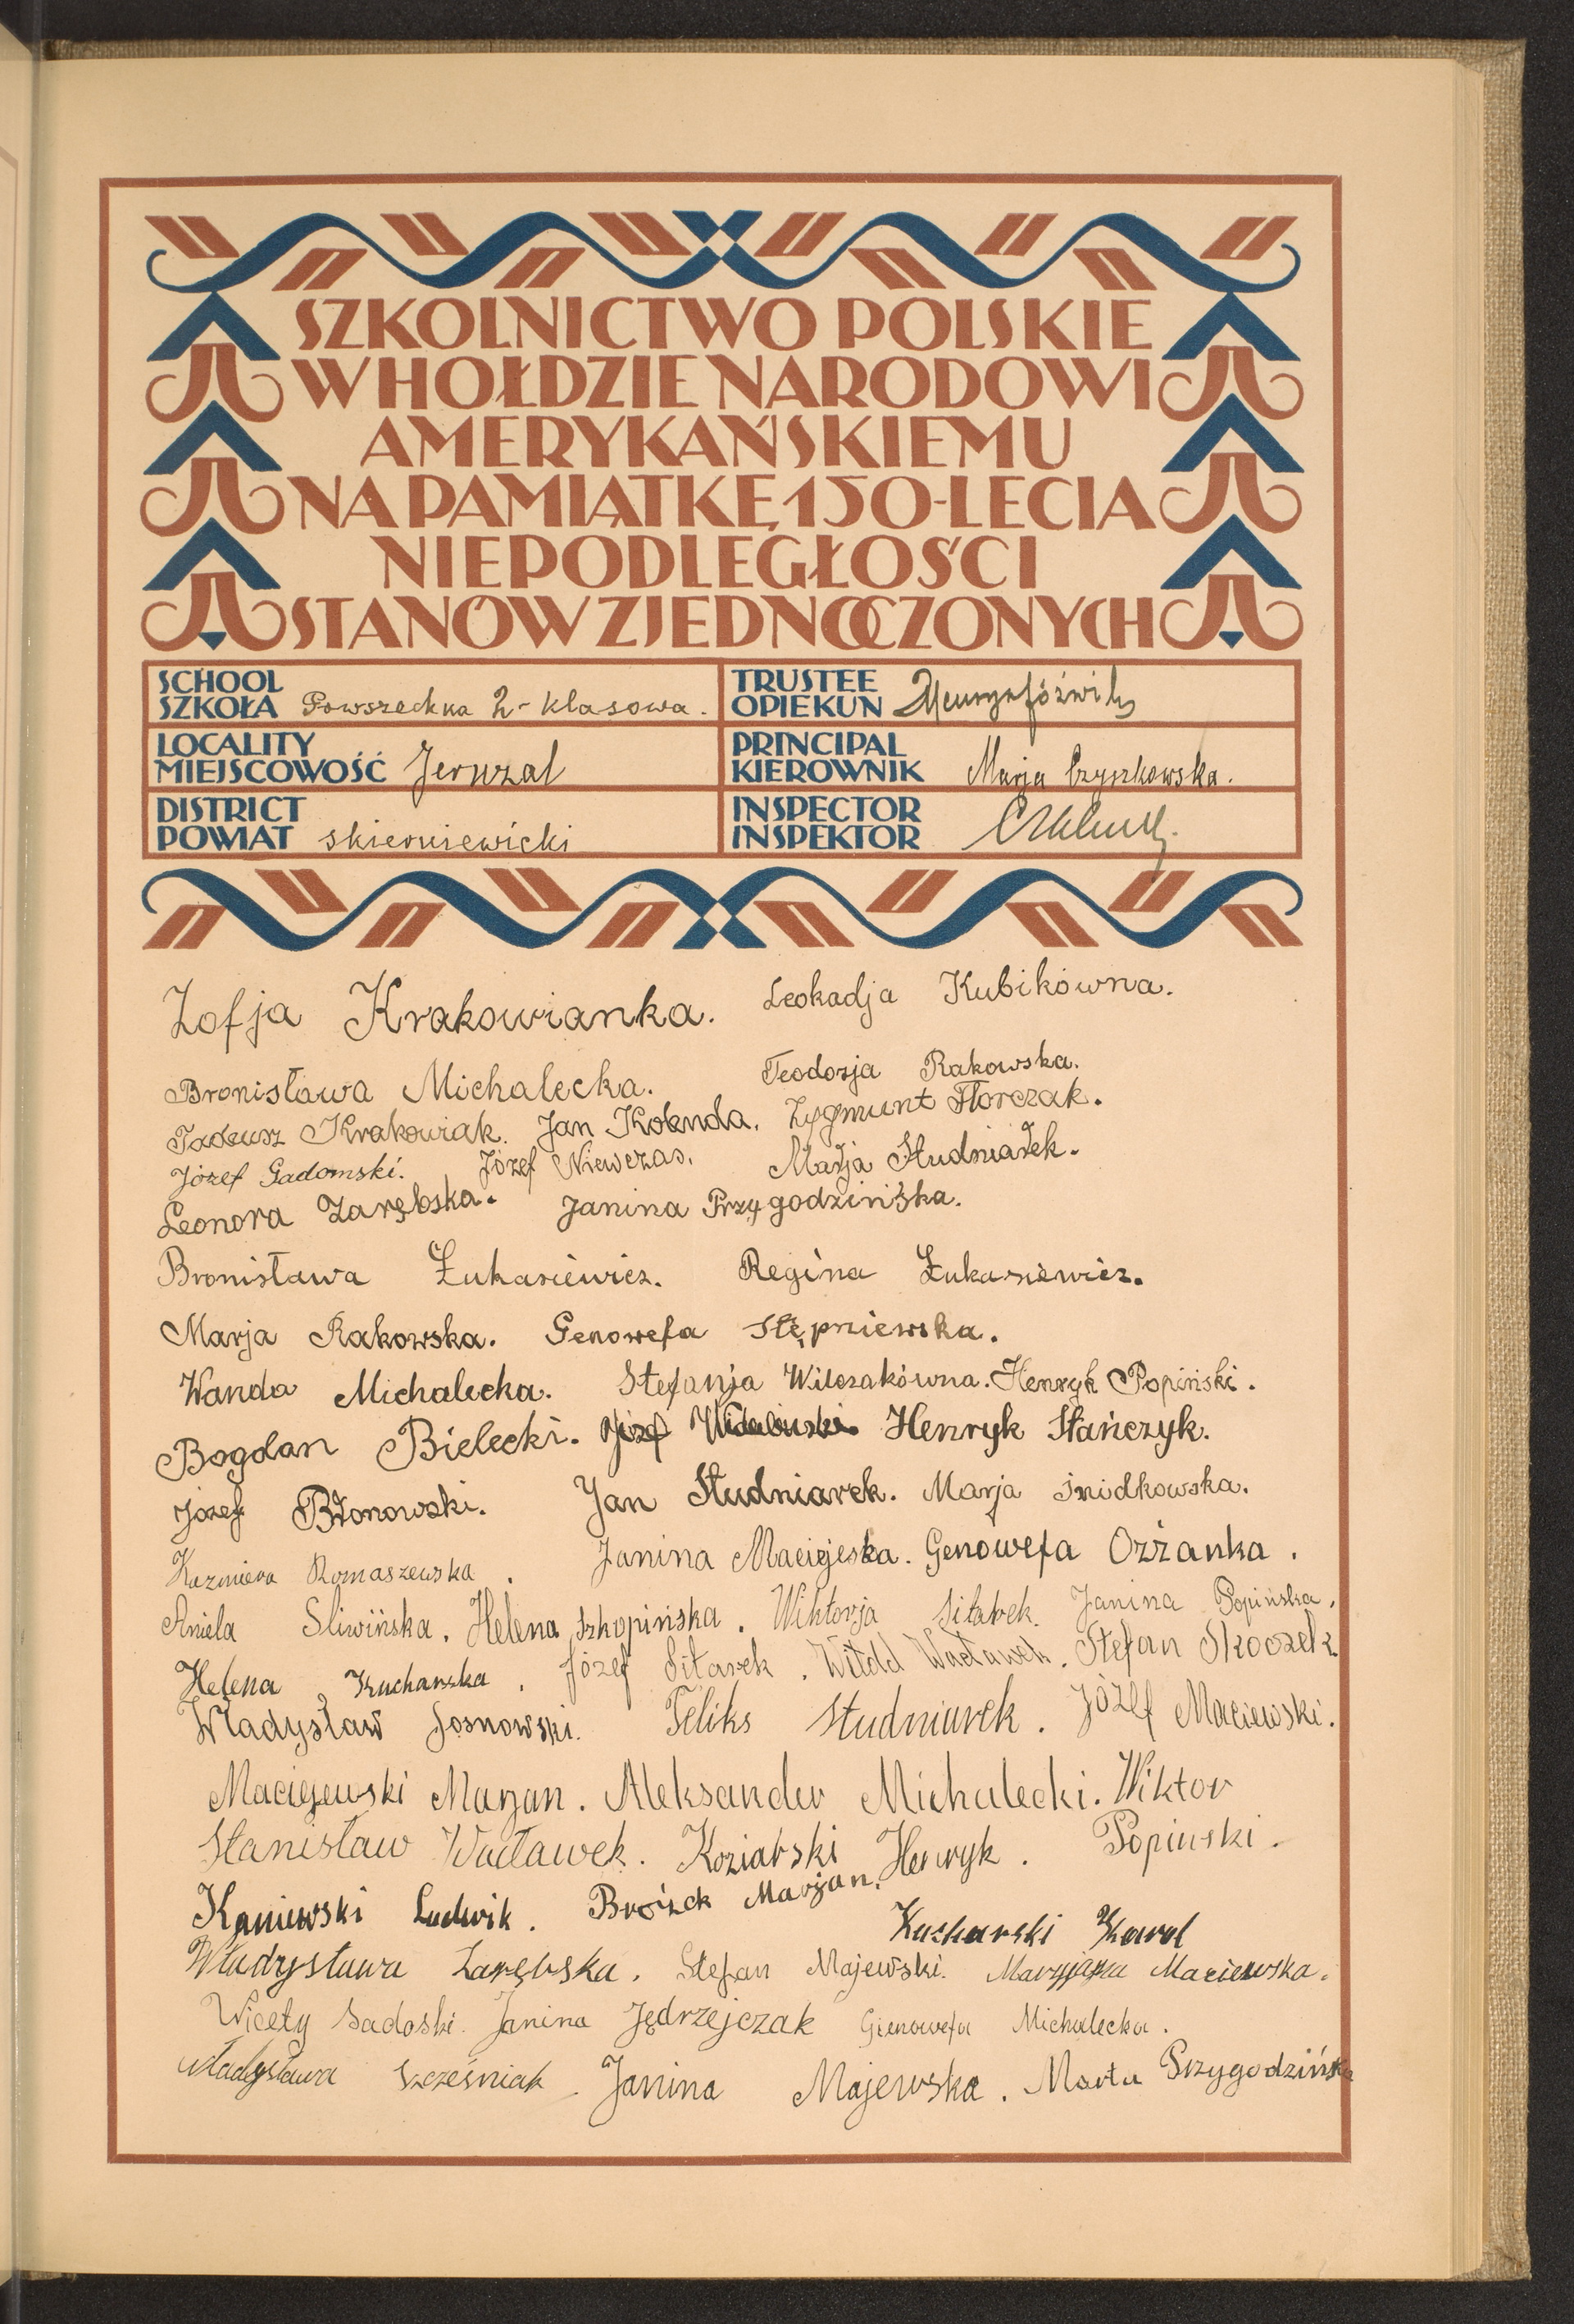 SZKOLNICTWO POLSKIE
W HOŁDZIE NARODOWI
AMERYKAŃSKIEMU
NA PAMIĄTKĘ 150-LECIA
NIEPODLEGŁOŚCI
STANÓW ZJEDNOCZONYCH
SCHOOL
SZKOŁA Powszechna 2-klasowa.
TRUSTEE
OPIEKUN
LOCALITY
MIEJSCOWOŚĆ Jeruzal
PRINCIPAL
KIEROWNIK Marja Czyszkowska.
DISTRICT
POWIAT skierniewicki
INSPECTOR
INSPEKTOR
Zofja Krakowianka. Leokadja Kubikówna.
Bronisława Michalecka. Teodozja Rakowska.
Tadeusz Krakowiak. Jan Kolenda. Zygmunt Florczak.
Józef Gadomski. Józef Niewczas. Marja Studniarek.
Leonora Zarębska. Janina Przygodzińska.
Bronisława Łukasiewicz. Regina Łukasiewicz.
Marja Rakowska. Genowefa Stępniewska.
Wanda Michalecka. Stefanja Wilczakówna. Henryk Popiński.
Bogdan Bielecki. Józef Henryk Stańczyk.
Józef Błonowski. Jan Studniarek. Marja Śnidkowska.
Kazmiera Romaszewska. Janina Maciejeska. Genowefa Ozżanka.
Aniela Sliwińska. Helena Szkopińska. Wiktorja Sitarek. Janina Popińska.
Helena Kucharska. Józef Sitarek. Witold Wacławek. Stefan Skoczek
Władysław Sosnowski. Feliks Studniarek. Józef Maciewski.
Maciejewski Maryan. Aleksander Michalecki. Wiktor
Stanisław Wacławek. Koziarski Henryk. Popiński.
Kaniewski Ludwik. Brózek Marjan.
Kucharski Karol
Władysława Zarębska. Stefan Majewski. Maciewska.
Wicety Sadoski. Janina Jędrzejczak Gienowefa Michalecka.
Władysława Szcześniak. Janina Majewska. Marta Przygodzińska